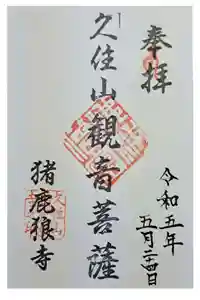 奉拝
令和五年
五月二十四日
久住山観音菩薩
猪鹿狼寺